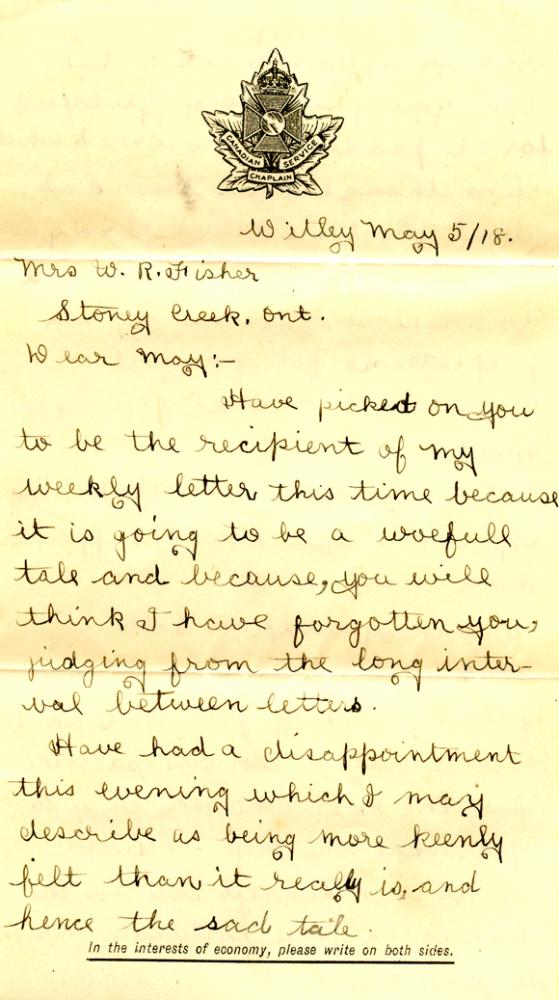 CANADIAN SERVICE
CHAPLAIN
Witley May 5/18.
Mrs W. R. Fisher
Stoney Creek, Ont.
Dear May:-
Have picked on you
to be the recipient of my
weekly letter this time because
it is going to be a woefull
tale and because, you will
think I have forgotten you,
judging from the long inter-
val between letters.
Have had a disappointment
this evening which I may
describe as being more keenly
felt than it really is, and
hence the sad tale.
In the interests of economy, please write on both sides.